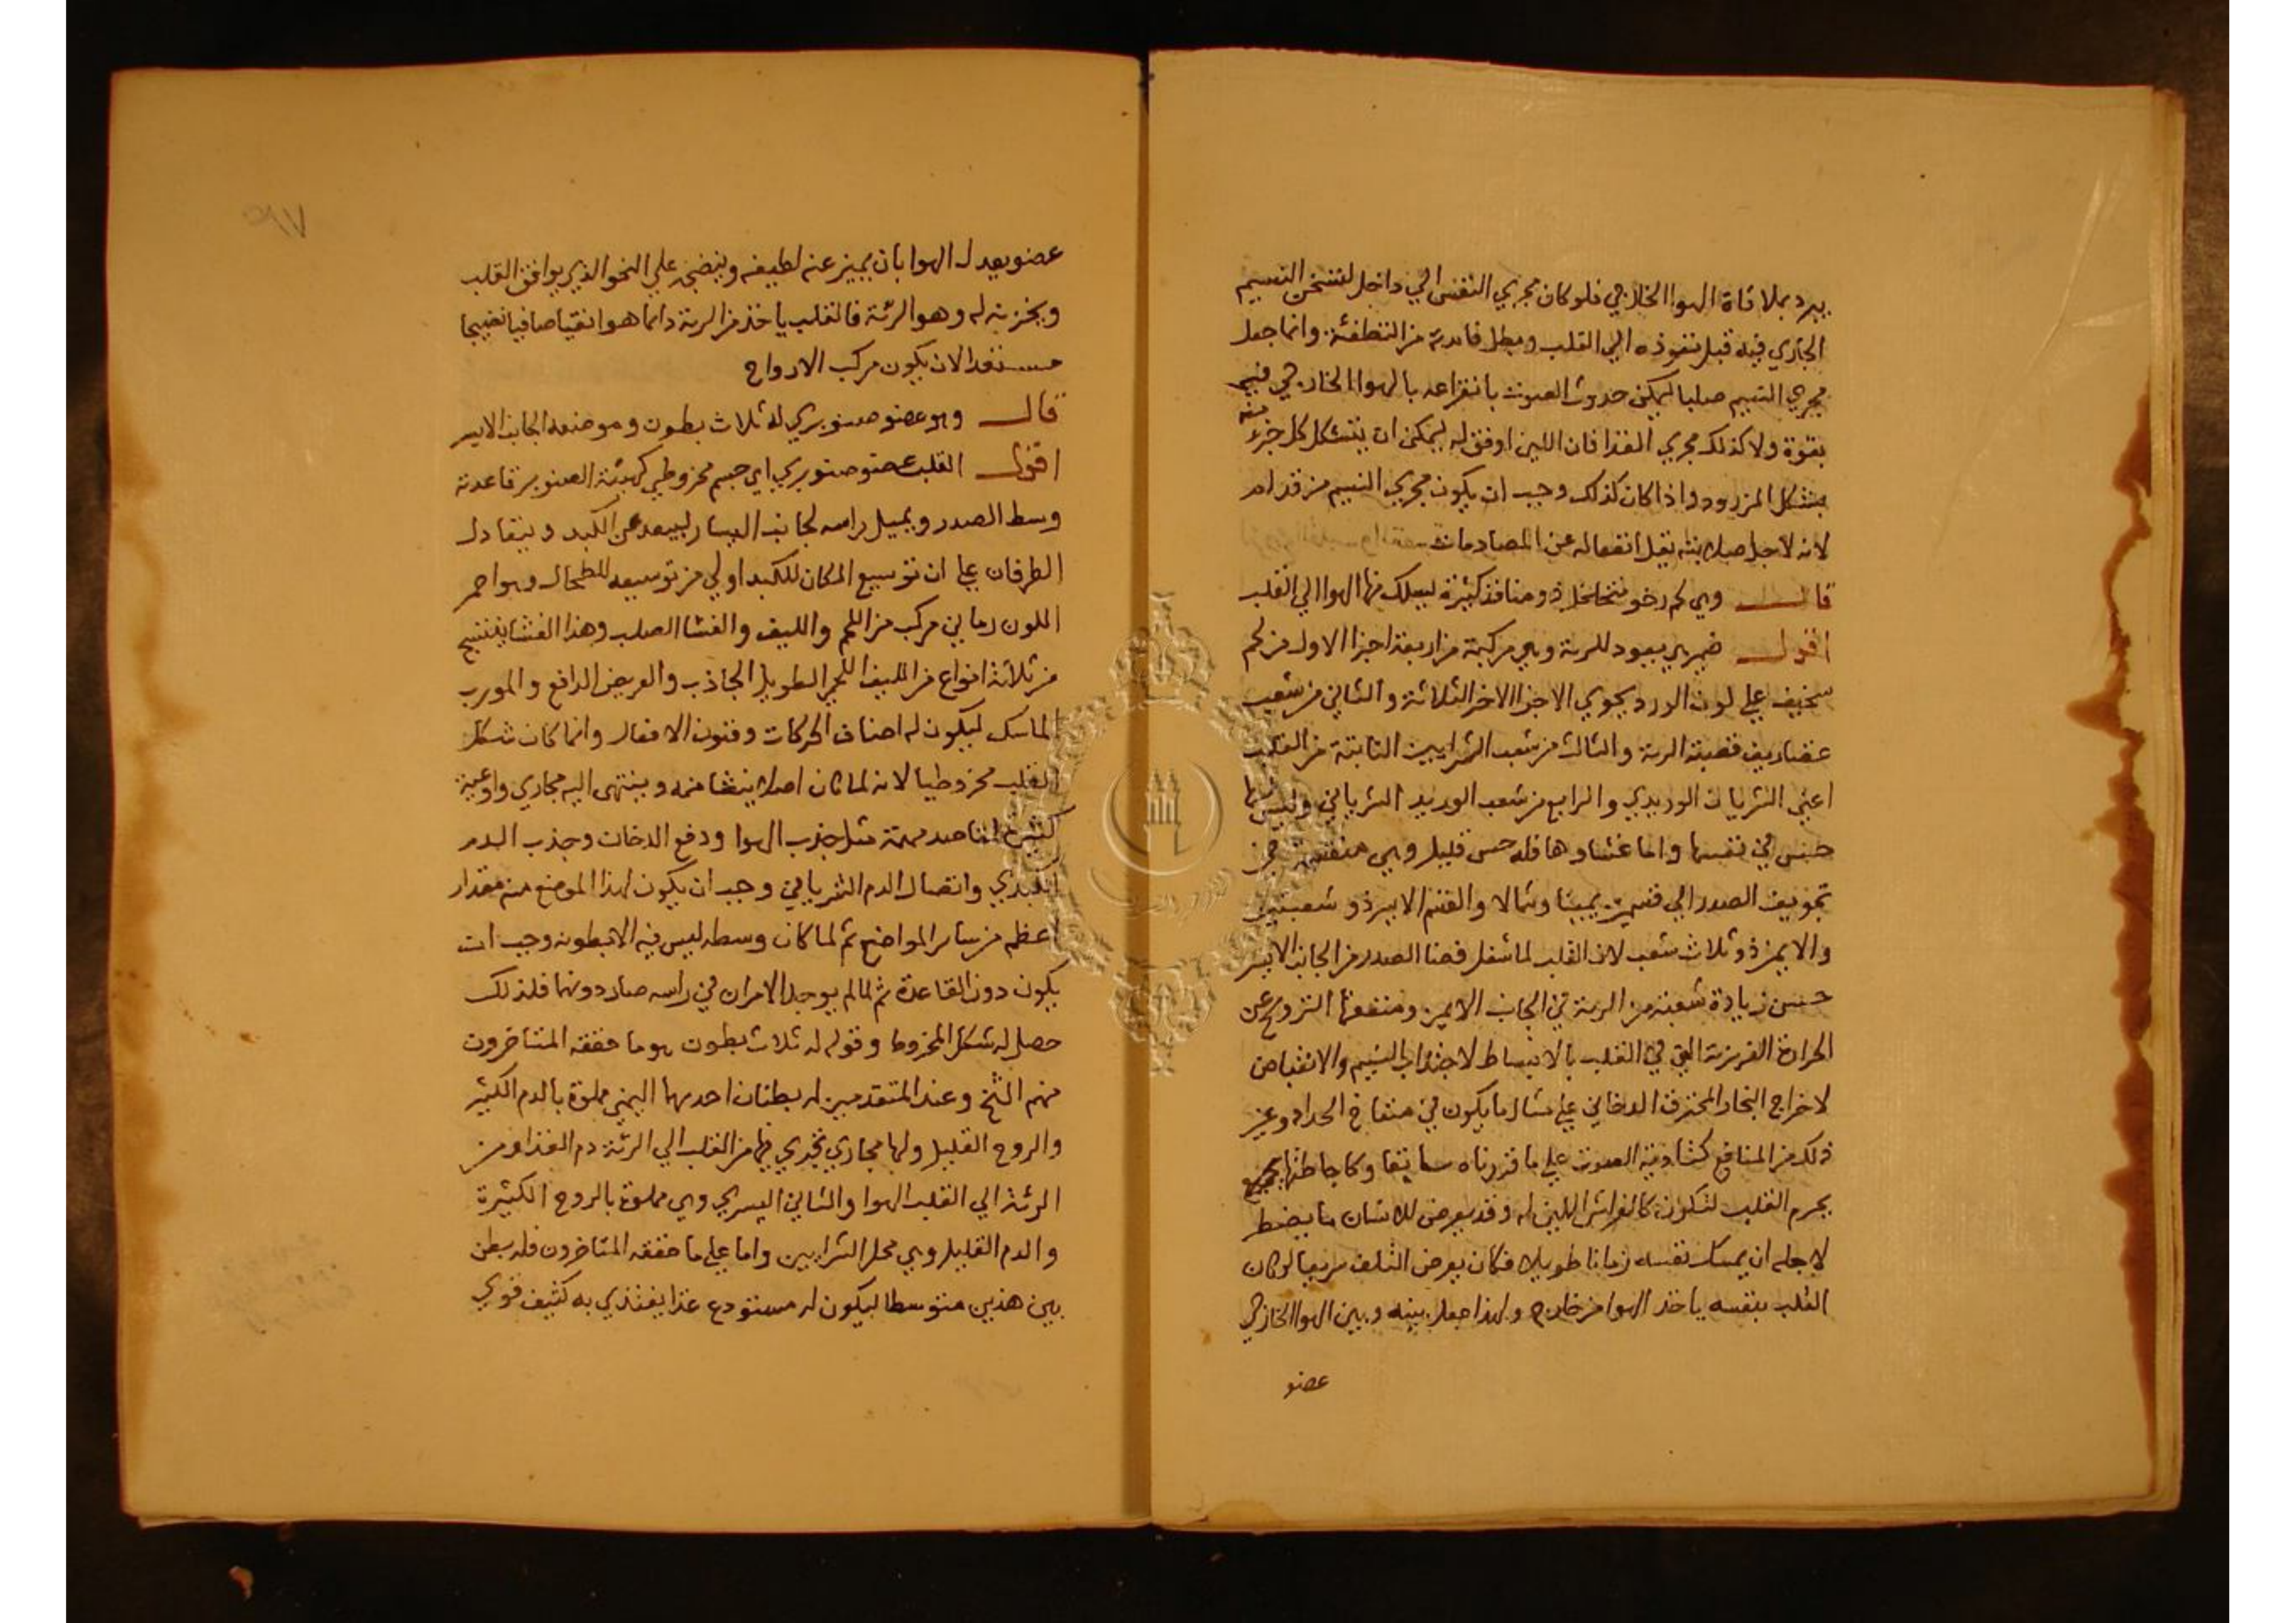 يبرد بملاقاة الهوا الخارجي فلو كان مجري النفس الي داخل لتسخن النسيم
الجاري فيه قبل نفوذه الي القلب وبطل فايدته من التطفئة وانما جعل
مجري النسيم صلبا ليمكن حدوث الصوت بانقراعه بالهوا الخارجي فيه
بقوة ولا كذلك مجري الغذا فان اللين اوفق له ليمكن ان يتشكل كل جزء منه
بشكل المزدرد واذا كان كذلك وجب ان يكون مجري النسيم من قدام
لانه لاجل صلابته يقل انفعاله عن المصادمات
قال وهي لحم رخو متخلخل ذو منافذ كثيرة ليسلك فيها الهوا الي القلب
اقول ضمير هي يعود للرية وهي مركبة من اربعة اجزا الاول من لحم
سخيف علي لون الورد يحوي الاجزا الاخر الثلاثة والثاني من شعب
غضاريف قصبة الرية والثالث من شعب الشرايين النابتة من القلب
اعني الشريان الوريدي والرابع من شعب الوريد الشرياني وليس لها
حس في نفسها واما غشاوها فله حس قليل وهي منقسمة في
تجويف الصدر الي قسمين يمينا وشمالا والقسم الايسر ذو شعبتين
والايمن ذو ثلاث شعب لان القلب لما شغل فضا الصدر من الجانب الايسر
حسن زيادة شعبة من الرية في الجانب الايمن ومنفعتها التروح عن
الحرارة الغريزية التي في القلب بالانبساط لاجتذاب النسيم والانقباض
لاخراج البخار المحترق الدخاني علي مثال ما يكون في منفاخ الحداد وغير
ذلك من المنافع كتادية الصوت علي ما قررناه سابقا وكاحاطتها بجميع
بجرم القلب لتكون كالفراش اللين له وقد يعرض للانسان ما يضطر
لاجله ان يمسك نفسه زمانا طويلا فكان يعرض التلف سريعا لو كان
القلب بنفسه ياخذ الهوا من خارج ولهذا جعل بينه وبين الهوا الخارجي
عضو
عضو يعدل الهوا بان يميز عنه لطيفه وينضجه علي النحو الذي يوافق القلب
ويخزنه له وهو الرئة فالقلب ياخذ من الرية دائما هوا نقيا صافيا نضيجا
مستعدا لان يكون مركب الارواح
قال وهو عضو صنوبري له ثلاث بطون وموضعه الجانب الايسر
اقول القلب عضو صنوبري اي جسم مخروطي كهيئة الصنوبر قاعدته
وسط الصدر ويميل راسه لجانب اليسار ليبعد عن الكبد ويتعادل
الطرفان علي ان توسيع المكان للكبد اولي من توسيعه للطحال وهو احمر
اللون رماني مركب من اللحم والليف والغشا الصلب وهذا الغشا ينتسج
من ثلاثة انواع من الليف اللحم الطويل الجاذب والعريض الدافع والمورب
الماسك ليكون له اصناف الحركات وفنون الافعال وانما كان شكل
القلب مخروطيا لانه لما كان اصلا ينشا منه وينتهي اليه مجاري واوعية
كثيرة لمقاصد مهمة مثل جذب الهوا ودفع الدخان وجذب الدم
الكبدي وانصال الدم الشرياني وجب ان يكون لهذا الموضع منه مقدار
اعظم من ساير المواضع ثم لما كان وسطه ليس فيه الا بطونه وجب ان
يكون دون القاعدة ثم لما لم يوجد الامران في راسه صار دونهما فلذلك
حصل له شكل المخروط وقوله له ثلاث بطون هو ما حققه المتاخرون
منهم الشخ وعند المتقدمين له بطنان احديهما اليمني مملوة بالدم الكثير
والروح القليل ولها مجاري تجري فيها من القلب الي الرئة دم الغذا ومن
الرئة الي القلب الهوا والثاني اليسري وهي مملوة بالروح الكثيرة
والدم القليل وهي محل الشرايين واما علي ما حققه المتاخرون فله بطن
بين هذين متوسطا ليكون له مستودع غذا يغتذي به كثيف قوي